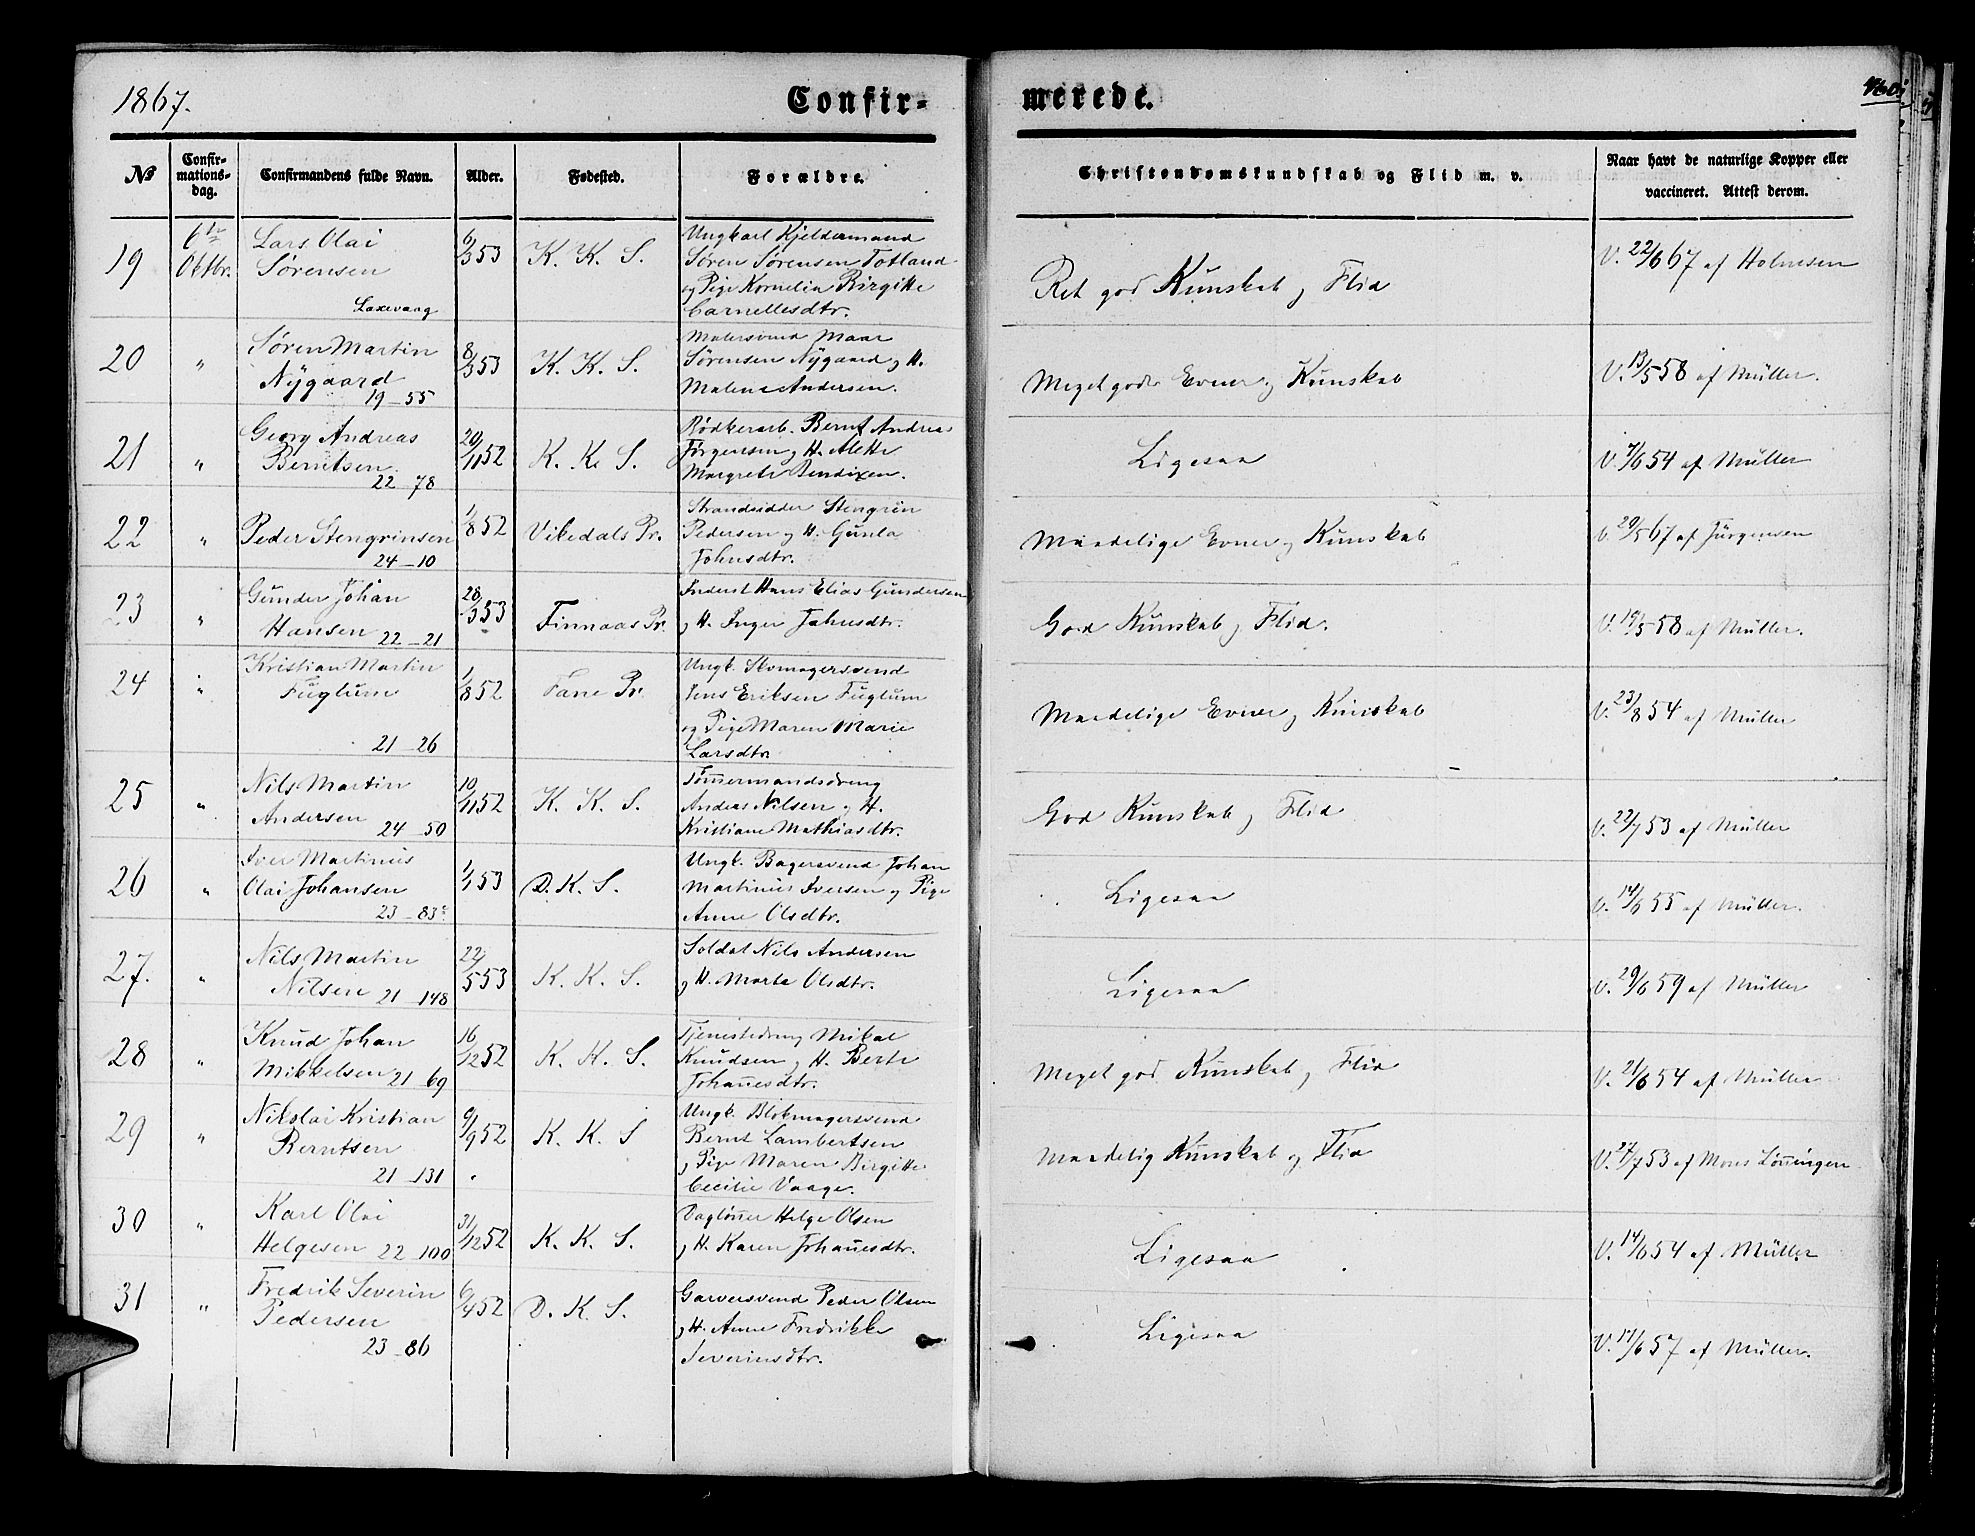 1867.
Confir-
merede.
№
Confir-
mations-
dag.
Confirmandens fulde Navn.
Alder.
Fødested.
Forældre.
Christendomskundskab og Flid m. v.
Naar havt de naturlige Kopper eller
vaccineret. Attest derom.
19
6te
Oktbr.
Lars Olai
Sørensen
Laxevaag
6/3 53
K. K. S.
Ungkarl Kjeldermand
Søren Sørensen Totland
og Pige Kornelia Birgitte
Carnellesdtr.
Ret god Kunskab og Flid
V. 22/6 67 af Holmesen
20
"
Søren Martin
Nygaard
19_55
8/3 53
K. K. S.
Malersvend Maar
Sørensen Nygaard og H.
Malene Andersen.
Meget gode Evner og Kunskab
V. 13/5 58 af Müller.
21
"
Georg Andreas
Berntsen
22_78
20/11 52
K. K. S.
Bødkerarb. Bernt Andreas
Jørgensen og H. Alette
Margrete Bendixen.
Ligesaa
V. 7/6 54 af Müller
22
"
Peder Stengrinsen
24_10
1/8 52
Vikedals Pr.
Strandsidder Stengrin
Pedersen og H. Gunla
Johnsdtr.
Maadelige Evner og Kunskab
V. 29/5 67 af Jürgensen
23
"
Gunder Johan
Hansen 22_21
28/3 53
Finnaas Pr.
Inderst Hans Elias Gundersen
og H. Inger Jahnsdtr.
God Kunskab og Flid.
V. 19/5 58 af Müller.
24
"
Kristian Martin
Fuglum
21_26
1/8 52
Fane Pr.
Ungk. Skomagersvend
Jens Eriksen Fuglum
og Pige Maren Marie
Larsdtr.
Maadelige Evner og Kunskab
V. 23/8 54 af Müller
25
"
Nils Martin
Andersen 24_50
10/11 52
K. K. S.
Tømermandsdreng
Andreas Nilsen og H.
Kristiane Mathiasdtr.
God Kunskab og Flid
V. 22/7 53 af Müller
26
"
Iver Martinus
Olai Johansen
23_83
1/1 53
D. K. S.
Ungk. Bagersvend Johan
Martinus Iversen og Pige
Anne Olsdtr.
Ligesaa
V. 14/6 55 af Müller.
27.
"
Nils Martin
Nilsen 21_148
22/5 53
K. K. S.
Soldat Nils Andersen
og H. Marta Olsdtr.
Ligesaa
V. 29/6 59 af Müller
28
"
Knud Johan
Mikkelsen 21_69
16/12 52
K. K. S.
Tjenestedreng Mikal
Knudsen og H. Berte
Johanesdtr.
Meget god Kunskab og Flid
V. 21/6 54 af Müller
29
"
Nikolai Kristian
Berntsen
21_131
9/9 52
K. K. S
Ungk. Blokmagersvend
Bernt Lambertsen
og Pige Maren Birgitte
Cecilie Vaage.
Maadelig Kunskab og Flid
V. 27/7 53 af Mons Lønningen
30
"
Karl Olai
Helgesen 22_100
31/12 52
K. K. S.
Dagløner Helge Olsen
og H. Karen Johanesdtr.
Ligesaa
V. 14/6 54 af Müller
31
"
Fredrik Severin
Pedersen
23_86
6/4 52
D. K. S.
Garversvend Peder Olsen
og H. Anne Fredrikke
Severinsdtr.
Ligesaa
V. 17/6 57 af Müller.